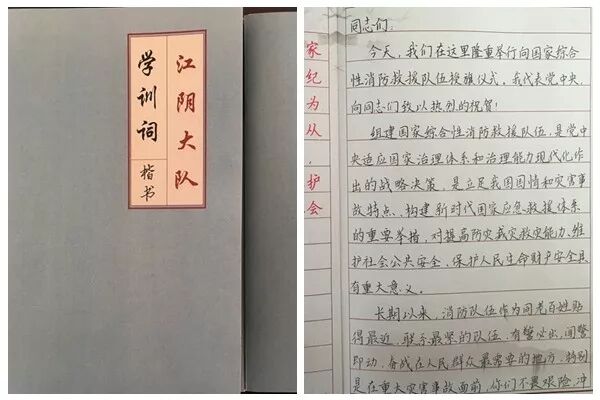 江阴大队
学训词
楷书
家
纪
为
从，
护
会
同志们：
今天，我们在这里隆重举行向国家综合
性消防救援队伍授旗仪式。我代表党中央，
向同志们致以热烈的祝贺！
组建国家综合性消防救援队伍，是党中
央适应国家治理体系和治理能力现代化作
出的战略决策，是立足我国国情和灾害事
故特点、构建新时代国家应急救援体系
的重要举措，对提高防灾减灾救灾能力、维
护社会公共安全、保护人民生命财产安全具
有重大意义。
长期以来，消防队伍作为同老百姓贴
得最近、联系最紧的队伍，有警必出、闻警
即动，奋战在人民群众最需要的地方，特别
是在重大灾害事故面前，你们不畏艰险、冲